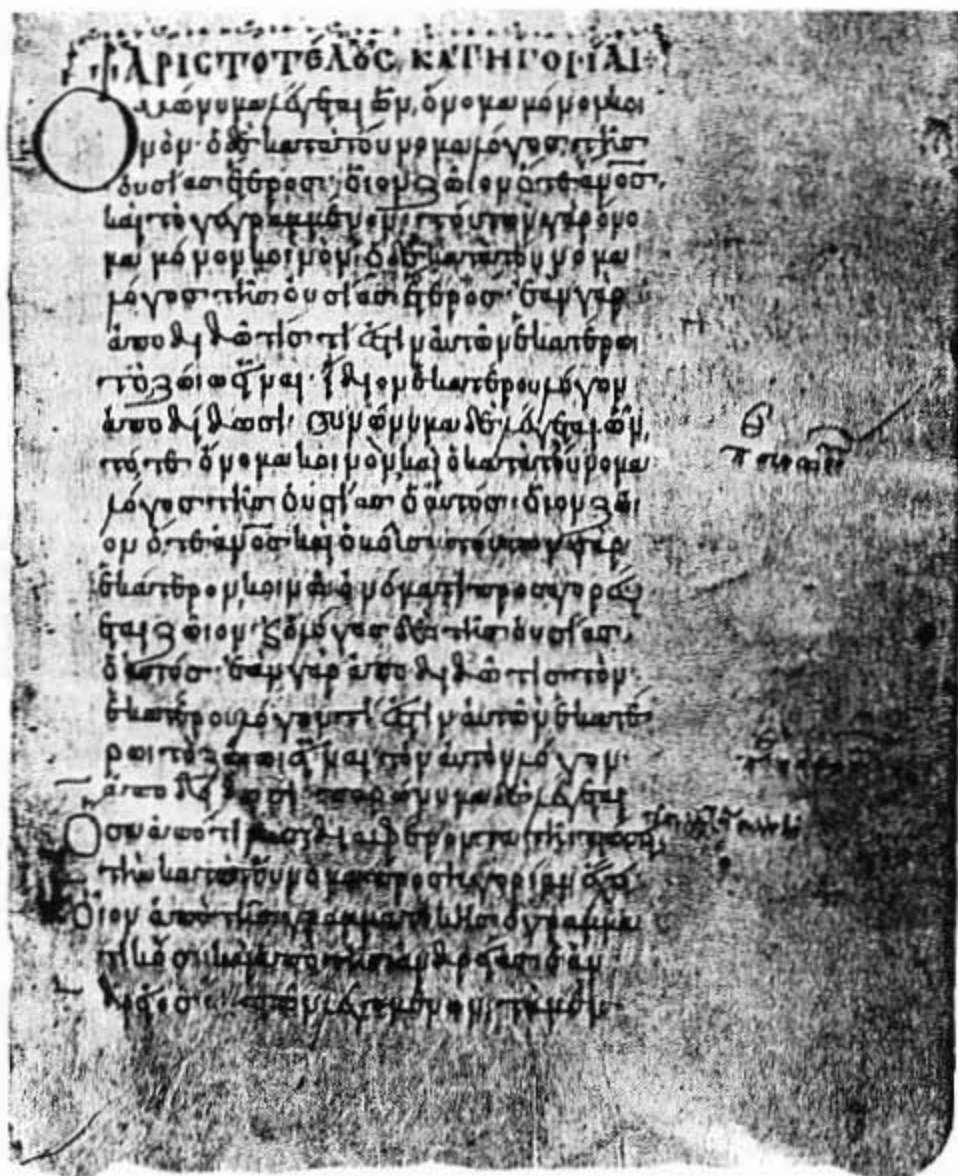 ἈΡΙΣΤΟΤΈΛΟΥΣ ΚΑΤΗΓΟΡΊΑΙ
Ὁμώνυμα λέγεται ὧν, ὄνομα μόνον κοι
νόν· ὁ δὲ κατὰ τοὔνομα λόγος τῆς
οὐσίας ἕτερος· οἷον ζῶιον ὅ τε ἄνος,
καὶ τὸ γεγραμμένον· τούτων γὰρ ὄνο
μα μόνον κοινόν· ὁ δὲ κατὰ τοὔνομα
λόγος τῆς οὐσίας ἕτερος· ἐὰν γὰρ
ἀποδιδῶ τίς τί ἐστιν αὐτῶν ἑκατέρωι
τὸ ζώιω εἶναι· ἴδιον ἑκατέρου λόγον
ἀποδώσει· συνώνυμα δὲ λέγεται ὧν,
τό τε ὄνομα κοινὸν καὶ ὁ κατὰ τοὔνομα
λόγος τῆς οὐσίας ὁ αὐτός· οἷον ζῶι
ον ὅ τε ἄνος καὶ ὁ βοῦς· τούτων γὰρ
ἑκάτερον κοινῶ ὀνόματι προσαγορεύ
εται ζῶιον· καὶ ὁ λόγος δὲ τῆς οὐσίας
ὁ αὐτός· ἐὰν γὰρ ἀποδιδῶ τίς τὸν
ἑκατέρου λόγον τί ἐστιν αὐτῶν ἑκατέ
ρωι τὸ ζώωι εἶναι τὸν αὐτὸν λόγον
ἀποδώσει· παρώνυμα δὲ λέγεται
ὅσα ἀπό τινος διαφέροντα τῆι πτώσει
τὴν κατὰ τοὔνομα προσηγορίαν ἔχει
οἷον ἀπὸ τῆς γραμματικῆς ὁ γραμμα
τικὸς· καὶ ἀπὸ τῆς ἀνδρείας ὁ ἀν
δρεῖος· τῶν λεγομένων, τὰ μὲν